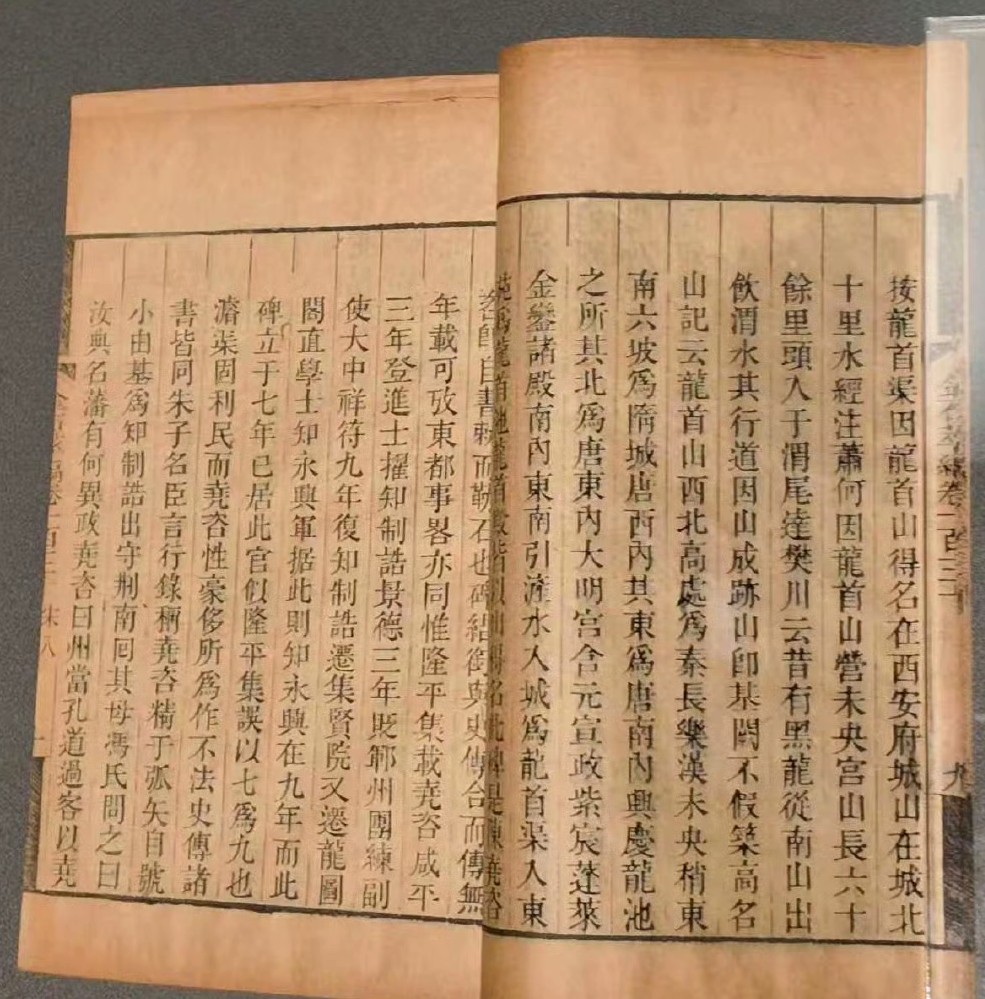 按龍首渠因龍首山得名在西安府城山在城北
十里水經注蕭何因龍首山營未央宮山長六十
餘里頭入于渭尾達樊川云昔有黑龍從南山出
飲渭水其行道因山成跡山卽基闕不假築高名
山記云龍首山西北高處爲秦長樂漢未央稍東
南六坡爲隋城唐西內其東爲唐南內興慶龍池
之所其北爲唐東內大明宮含元宣政紫宸蓬萊
金鑾諸殿南內東南引滻水入城爲龍首渠入東
咨卽自書勅而勒石也碑結銜與史傳合而傳無
年載可攷東都事畧亦同惟隆平集載堯咨咸平
三年登進士擢知制誥景德三年貶鄆州團練副
使大中祥符九年復知制誥遷集賢院又遷龍圖
閣直學士知永興軍据此則知永興在九年而此
碑立于七年已居此官似隆平集誤以七爲九也
濬渠固利民而堯咨性豪侈所爲作不法史傳諸
書皆同朱子名臣言行錄稱堯咨精于弧矢自號
小由基爲知制誥出守荆南囘其母馮氏問之曰
汝典名藩有何異政堯咨曰州當孔道過客以堯
卷一百三十
九